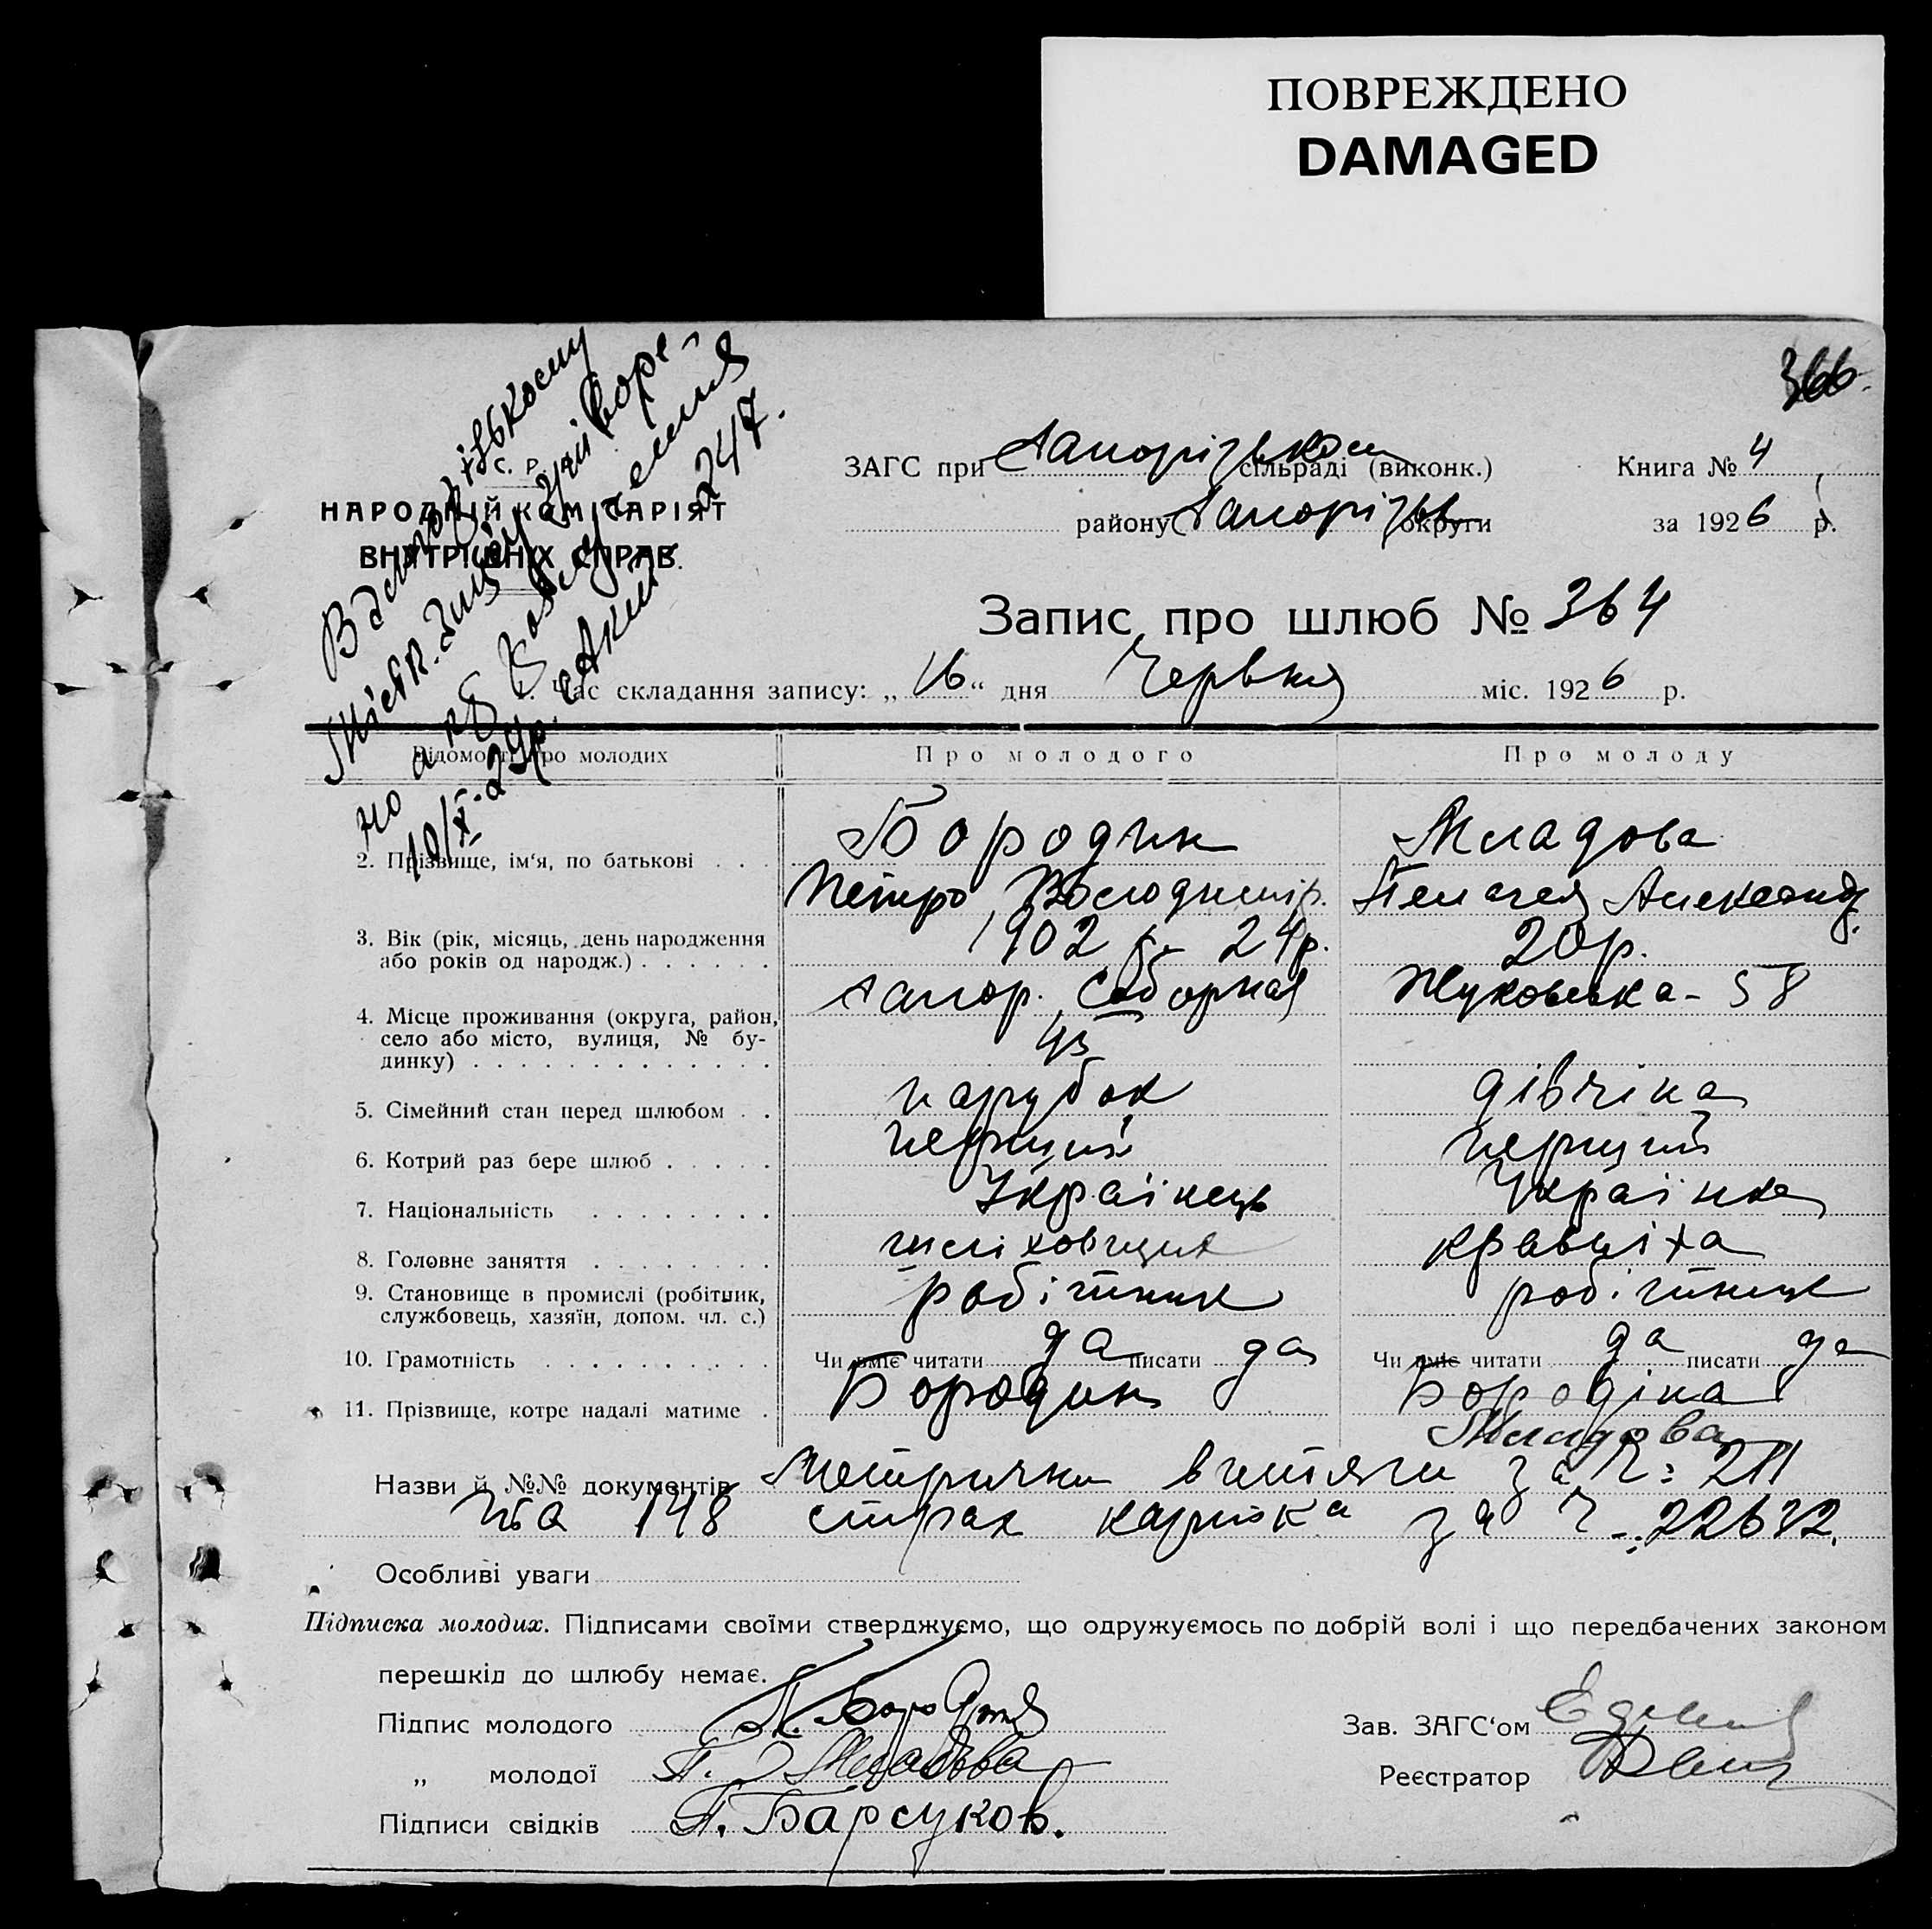 ПОВРЕЖДЕНО
DAMAGED
366.
С. Р.
НАРОДНІЙ КОМІСАРІЯТ
ВНУТРІШНІХ СПРАВ.
В Запорізькому
10/X-29р. Акт 247.
ЗАГС при Запорізьком сільраді (виконк.) Книга № 4
району Запорізьк округи за 1926 р.
Запис про шлюб № 364
1. Час складання запису: „16“ дня Червня міс. 1926 р.
Відомості про молодих Про молодого Про молоду
2. Прізвище, ім‘я, по батькові . . . Бородин Младова
Петро Володимір. Пелагея Александ.
3. Вік (рік, місяць, день народження 1902 р. 24р. 20р.
або років од народж.) . . . . . .
4. Місце проживання (округа, район, Запор. Соборная Жуковська - 58
село або місто, вулиця, № бу- 43
динку) . . . . . . . . . . . . .
5. Сімейний стан перед шлюбом . . парубок дівчіна
6. Котрий раз бере шлюб . . . . . перший перший
7. Національність . . . . . . . . Українець Українка
8. Головне заняття . . . . . . . . кравчіха
9. Становище в промислі (робітник, робітник робітниця
службовець, хазяїн, допом. чл. с.)
10. Грамотність . . . . . . . . . . Чи вміє читати да писати да Чи вміє читати да писати да
11. Прізвище, котре надалі матиме . Бородин Бородіна
Младова
Назви й №№ документів Метрични витяги за Ч: 211
та 148 страх картка за Ч-: 22632.
Особливі уваги
Підписка молодих. Підписами своїми стверджуємо, що одружуємось по добрій волі і що передбачених законом
перешкід до шлюбу немає.
Підпис молодого П. Бородин Зав. ЗАГС‘ом
„ молодої П. Младова Реєстратор
Підписи свідків П. Барсуков.